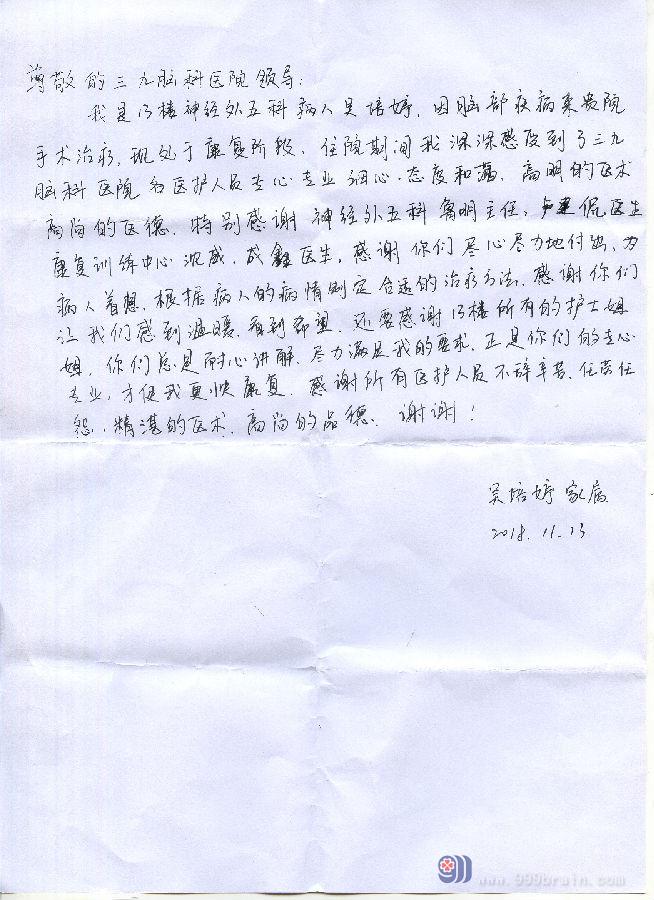 尊敬的三九脑科医院领导：
我是13楼神经外五科病人吴培婷，因脑部疾病来贵院
手术治疗，现处于康复阶段、住院期间我深深感受到了三九
脑科医院各医护人员专心专业细心、态度和蔼、高明的医术
高尚的医德、特别感谢神经外五科鲁明主任，侃医生
康复训练中心沈威、成鑫医生，感谢你们尽心尽力地付出，为
病人着想、根据病人的病情制定合适的治疗方法、感谢你们
让我们感到温暖、看到希望、还要感谢13楼所有的护士姐
姐，你们总是耐心讲解、尽力满足我的要求、正是你们的专心
专业，才使我更快康复、感谢所有医护人员不辞辛苦、任劳任
怨、精湛的医术、高尚的品德、谢谢！
吴培婷家属
2018.11.13
www.999brain.com